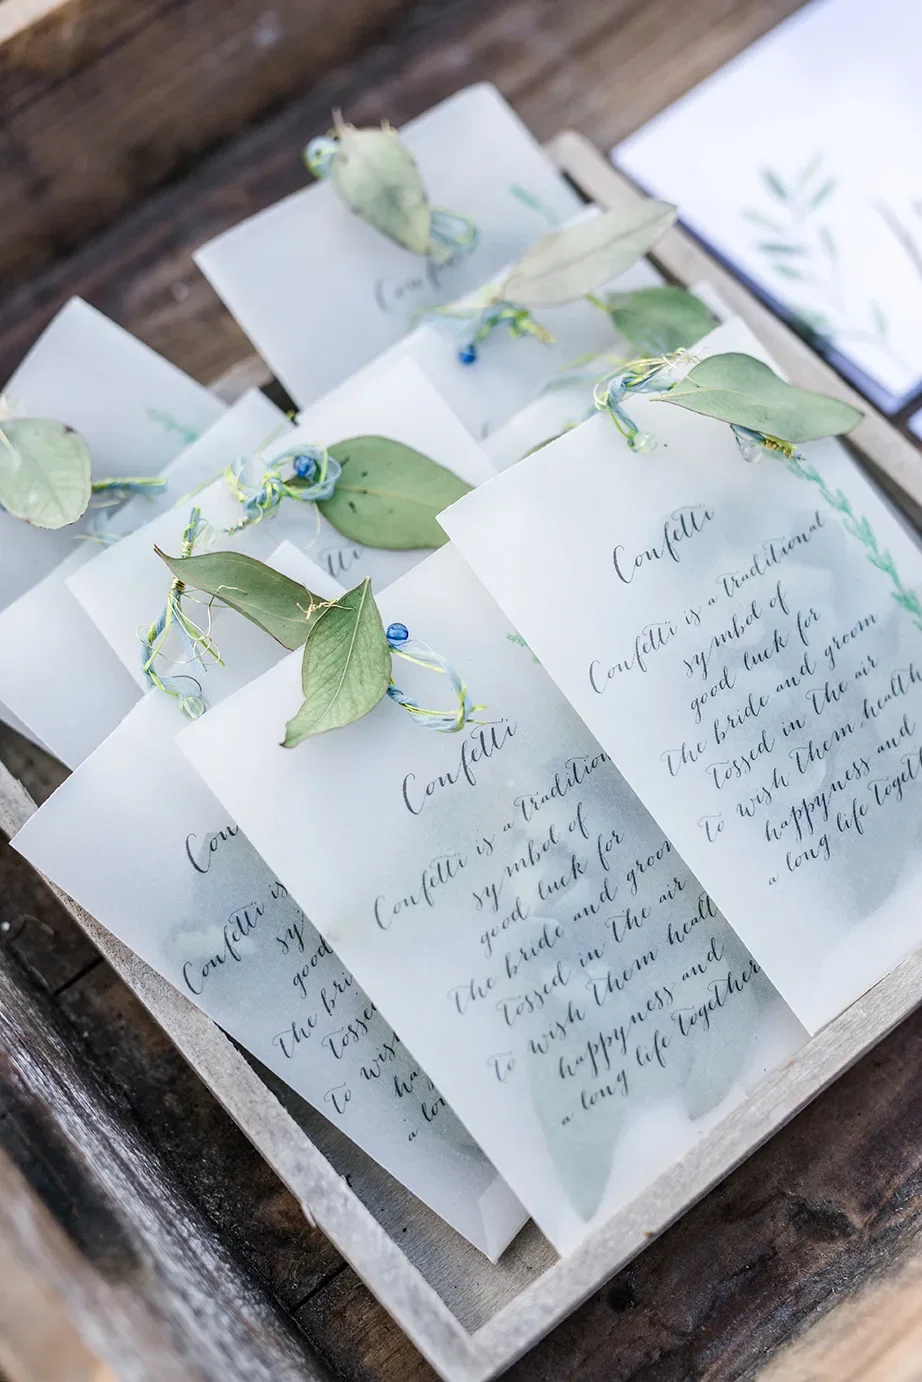 Confetti
Confetti
Confetti is a traditional
symbol of
good luck for
the bride and groom
tossed in the air
to wish them health
happyness and
a long life together
Confetti
Confetti is a tradition
symbol of
good luck for
the bride and groom
tossed in the air
to wish them healt
happyness and
a long life together
Con
Confetti is
sy
good
the bri
tossed
to wish
ha
a lon